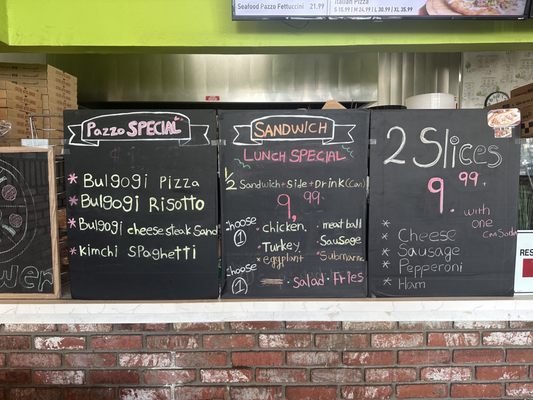 Seafood Pazzo Fettuccini 21.99
Italian Pizza
S 18.99 | M 24.99 | L 30.99 | XL 35.99
Pazzo SPECIAL
* Bulgogi Pizza
* Bulgogi Risotto
* Bulgogi cheese steak Sand
* Kimchi Spaghetti
SANDWICH
LUNCH SPECIAL
1/2 Sandwich + Side + Drink (Can)
9.99
choose 1
• chicken
• Turkey
• eggplant
• meat ball
• Sausage
• Submarine
choose 1
• Salad • Fries
2 Slices
9.99
with one
Can Soda
* Cheese
* Sausage
* Pepperoni
* Ham